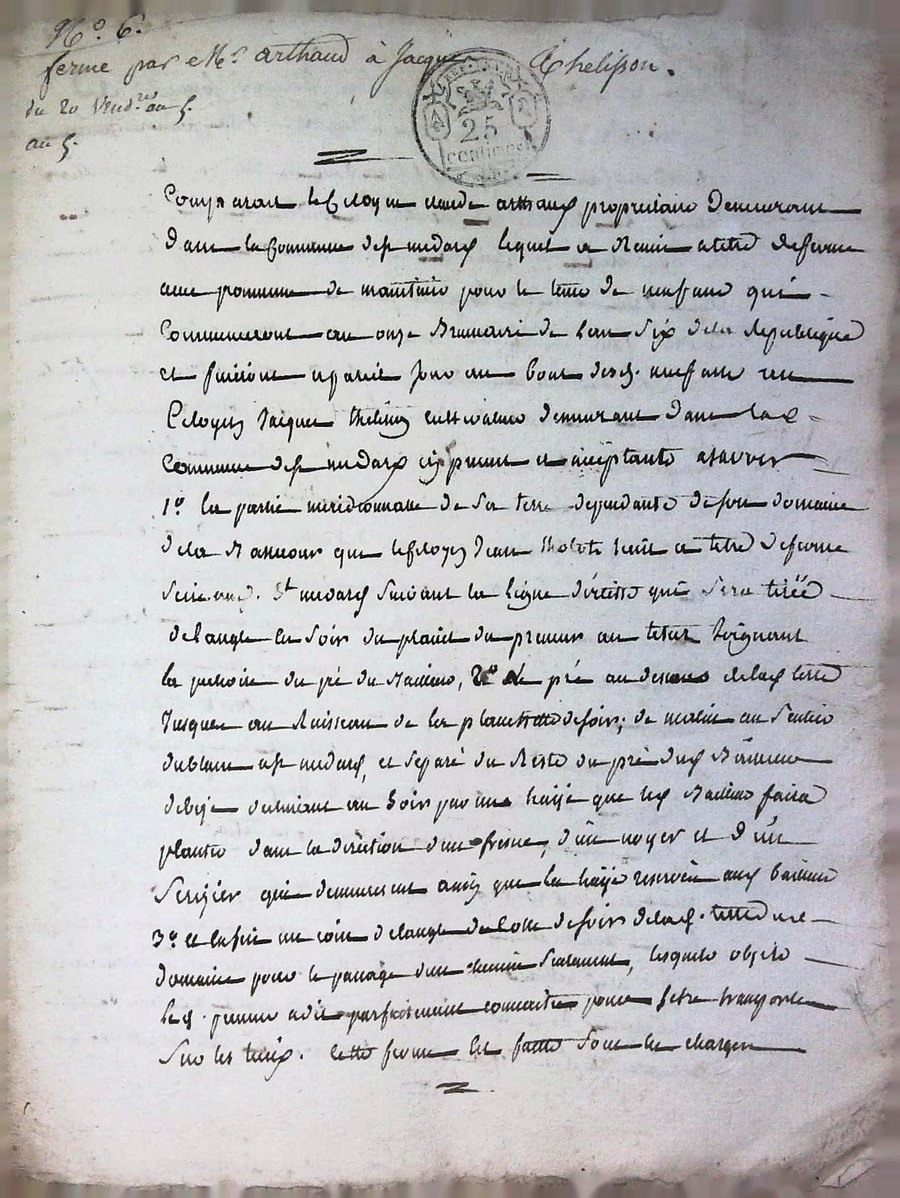 N.o 6.
ferme par Mr. arthaud à Jacques Thelisson.
du 20 Vend.re an 5.
an 5.
25
centimes
Comparait le Citoyen claude arthaud propriétaire demeurant
dans la Commune de st medard lequel a Remis a titre de ferme
avec promesse de maintenir pour le terme de neuf ans qui
Commenceront au onze Brumaire de l'an Six de la République
et finiront a pareil Jour au bout desd. neuf ans au
Citoyen Jacques thelisson cultivateur demeurant dans lad.
Commune de st medard cy present et acceptant a savoir
1.o la partie meridionnale de la terre dependante de son domaine
de la que le Citoyen Jean tient a titre de ferme
st medard Suivant la ligne directe qui Sera tirée
de l'angle de Soir du du preneur au Joignant
la du pré du Bailleur, 2.o le pré au dessous de lad. terre
Jusques au Ruisseau de la de soir, de matin au Sentier
a st medard, et Separé du Reste du pré dud. Bailleur
de Bize au Soir par une haije que led. Bailleur faira
planter dans la direction d'un fresne, d'un noyer et d'un
Serizier qui demeurent ainsi que la haije reservés aud. bailleur
3.o et enfin un coin de l'angle de soir de lad. terre
domaine pour le passage d'un chemin Seulement, lesquels objets
led. preneur a dit parfaitement connaitre pour s'etre transporté
Sur les lieux. Cette ferme est faitte Sous les charges